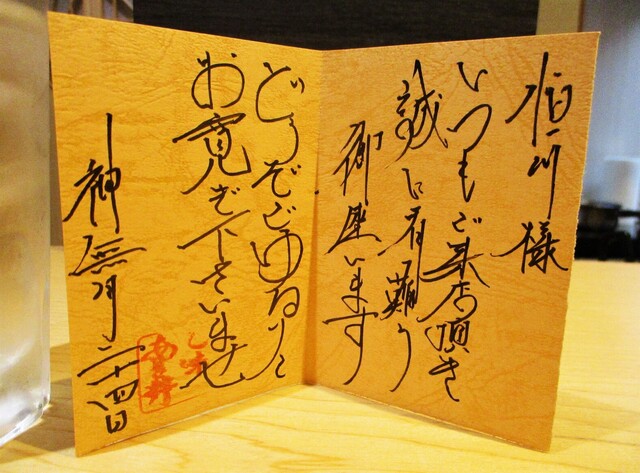 恒川様
いつもご来店頂き
誠に有難う
御座います
どうぞごゆるりと
お寛ぎ下さいませ
神無月二十四日